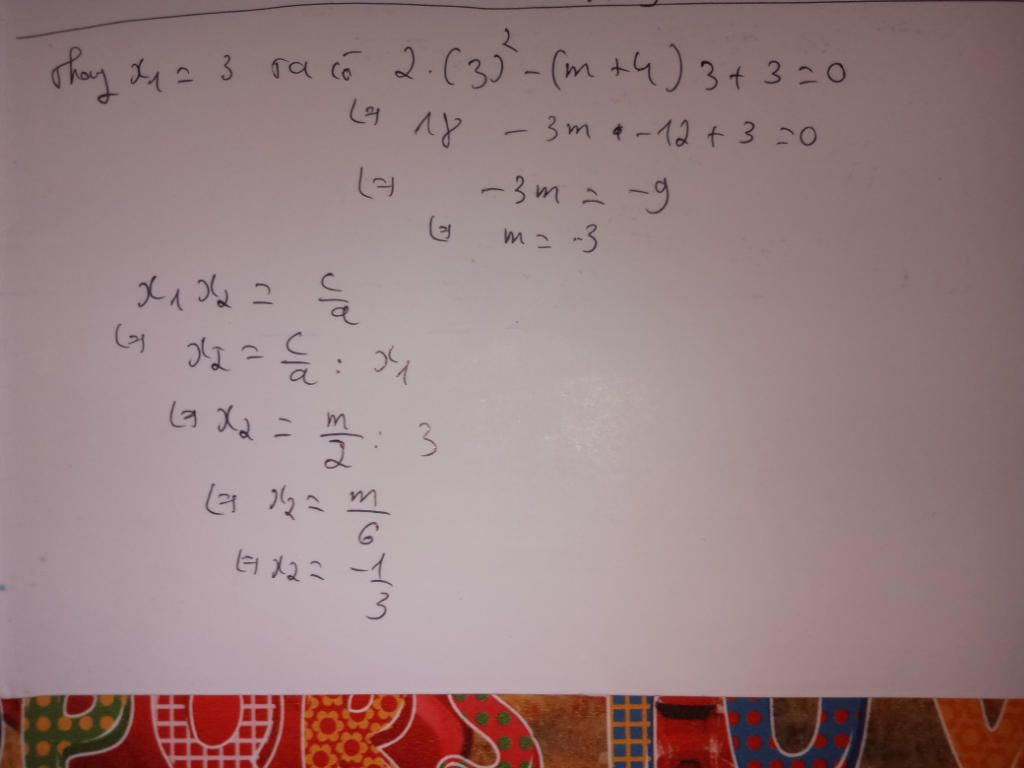 Thay x₁ = 3 ta có 2·(3)² - (m + 4) 3 + 3 = 0
⇔ 18 - 3m - 12 + 3 = 0
⇔ -3m = -9
⇔ m = -3
x₁ x₂ = c/a
⇔ x₂ = c/a : x₁
⇔ x₂ = m/2 : 3
⇔ x₂ = m/6
⇔ x₂ = -1/3